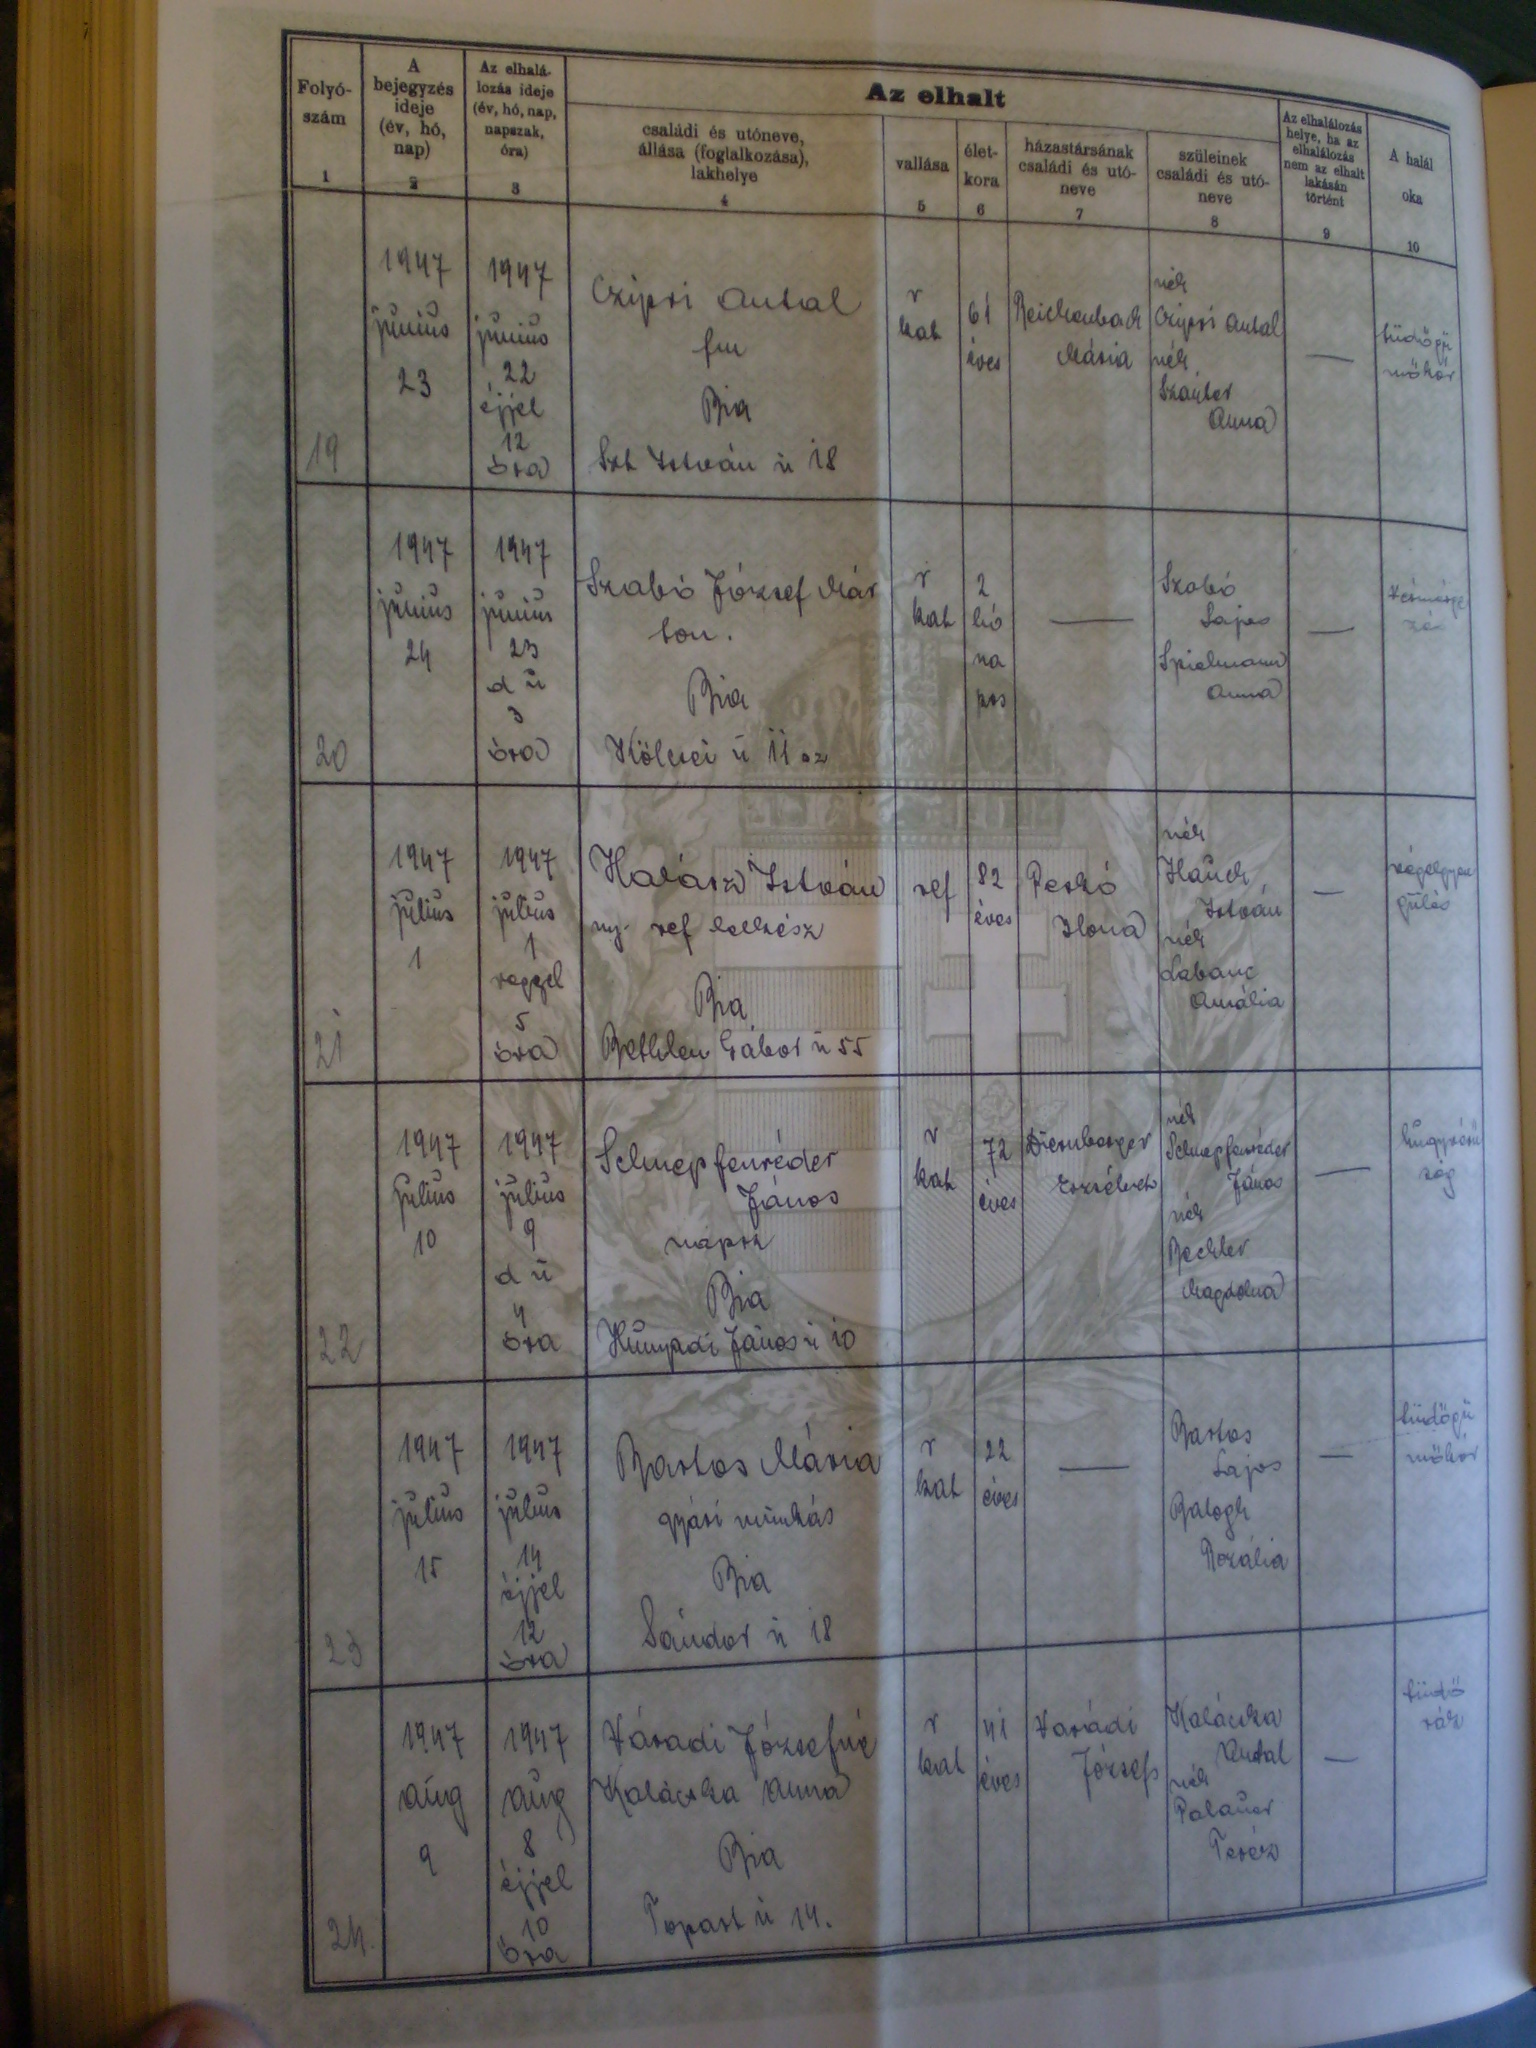 Folyó-
szám
1
A
bejegyzés
ideje
(év, hó,
nap)
2
Az elhalá-
lozás ideje
(év, hó, nap,
napszak,
óra)
3
Az elhalt
családi és utóneve,
állása (foglalkozása),
lakhelye
4
vallása
5
élet-
kora
6
házastársának
családi és utó-
neve
7
szüleinek
családi és utó-
neve
8
Az elhalálozás
helye, ha az
elhalálozás
nem az elhalt
lakásán
történt
9
A halál
oka
10
19
1947
június
23
1947
június
22
éjjel
12
óra
Czipri Antal
fm
Bia
Szt István ú 18
r
kat
61
éves
Reichenbach
Mária
néh
Czipri Antal
néh
Szauter
Anna
—
tüdőgü
mőkór
20
1947
június
24
1947
június
23
d u
3
óra
Szabó József Már
ton.
Bia
Kölcsei ú 11 sz
r
kat
2
hó
na
pos
—
Szabó
Lajos
Spielmann
Anna
—
21
1947
július
1
1947
július
1
reggel
5
óra
Halász István
ny. ref lelkész
Bia
Bethlen Gábor ú 55
ref
82
éves
Peskó
Ilona
néh
Hauck
István
néh
Labanc
Amália
—
végelgyen
gülés
22
1947
július
10
1947
július
9
d u
4
óra
Schnepfenréder
János
napsz
Bia
Hunyadi János ú 10
r
kat
72
éves
Diernberger
Erzsébet
néh
Schnepfenréder
János
néh
Bechler
Magdolna
—
hugyvérü
ség
23
1947
július
15
1947
július
14
éjjel
12
óra
Bartos Mária
gyári munkás
Bia
Sándor ú 18
r
kat
22
éves
—
Bartos
Lajos
Balogh
Rozália
—
tüdőgü
mőkór
24.
1947
aug
9
1947
aug
8
éjjel
10
óra
Váradi Józsefné
Kalácska Anna
Bia
Topart ú 14.
r
kat
41
éves
Varádi
József
Kalácska
Antal
néh
Palauer
Teréz
—
tüdő
rák